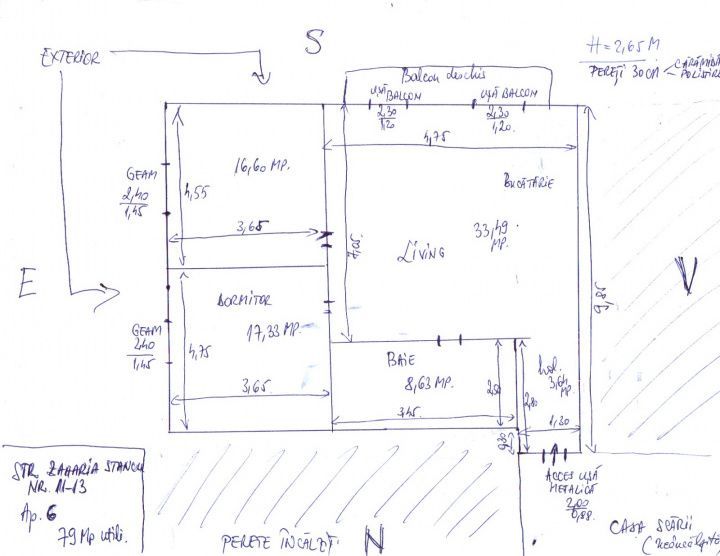 S
EXTERIOR
H = 2,65 M
PEREȚI 30 CM
Balcon deschis
UȘĂ BALCON
2,30
1,20
UȘĂ BALCON
2,30
1,20
4,75
16,60 MP.
GEAM
2,40
1,45
4,55
BUCĂTĂRIE
3,65
7,05
LIVING
33,49 MP.
E
V
9,85
DORMITOR
17,33 MP.
GEAM
2,40
1,45
4,75
3,65
BAIE
8,63 MP.
3,45
hol.
3,64 MP
1,30
ACCES UȘĂ
METALICĂ
2,00
0,88
STR. ZAHARIA STANCU
NR. 11-13
Ap. 6
79 Mp utili.
PERETE ÎNCĂLZIT
N
CASA SCĂRII